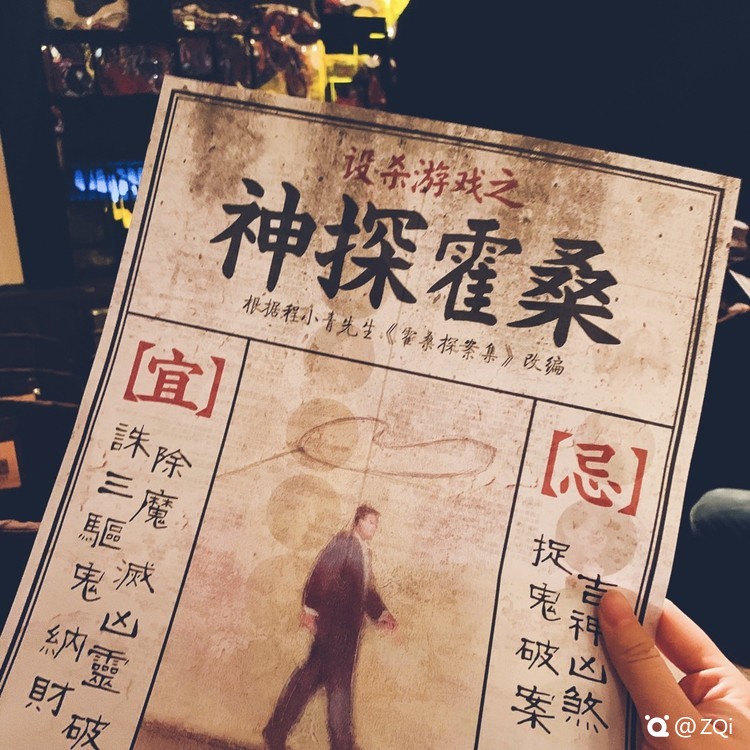 设杀游戏之
神探霍桑
根据程小青先生《霍桑探案集》改编
【宜】
除魔滅凶靈破
誅三驅鬼納財
【忌】
吉神凶煞
捉鬼破案
@ZQi